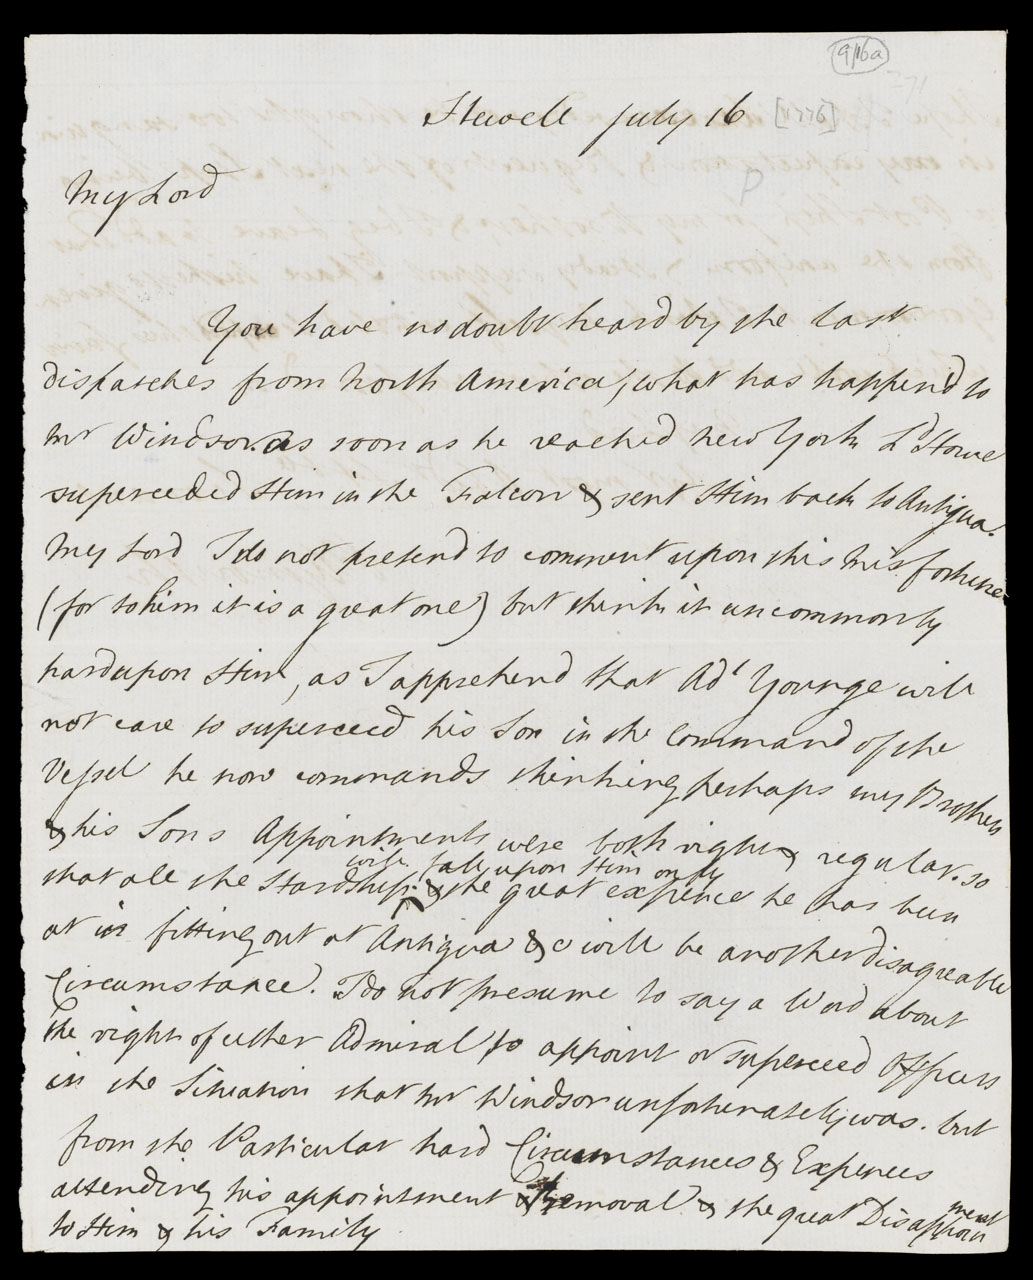 9/16a
271
Hewell July 16 [1776]
P
My Lord
You have no doubt heard by the last
dispatches from North America, what has happend to
Mr Windsor. as soon as he reached New York Ld Howe
superceeded Him in the Falcon & sent Him back to Antigua.
My Lord I do not pretend to comment upon this Misfortune
(for to him it is a great one) but think it uncommonly
hard upon Him, as I apprehend that Adl Younge will
not care to superceed his Son in the Command of the
Vessel he now commands thinking perhaps my Brothers
& his Sons Appointments were both right & regular. so
will fall upon Him only
that all the Hardship. & the great expence he has been
at in fitting out at Antigua &c will be another disagreable
Circumstance. I do not presume to say a Word about
the right of either Admiral to appoint or superceed Officers
in the Situation that Mr Windsor unfortunately was. but
from the Particular hard Circumstances & Expences
attending his appointment & removal & the great Disappoin
ment
to Him & his Family